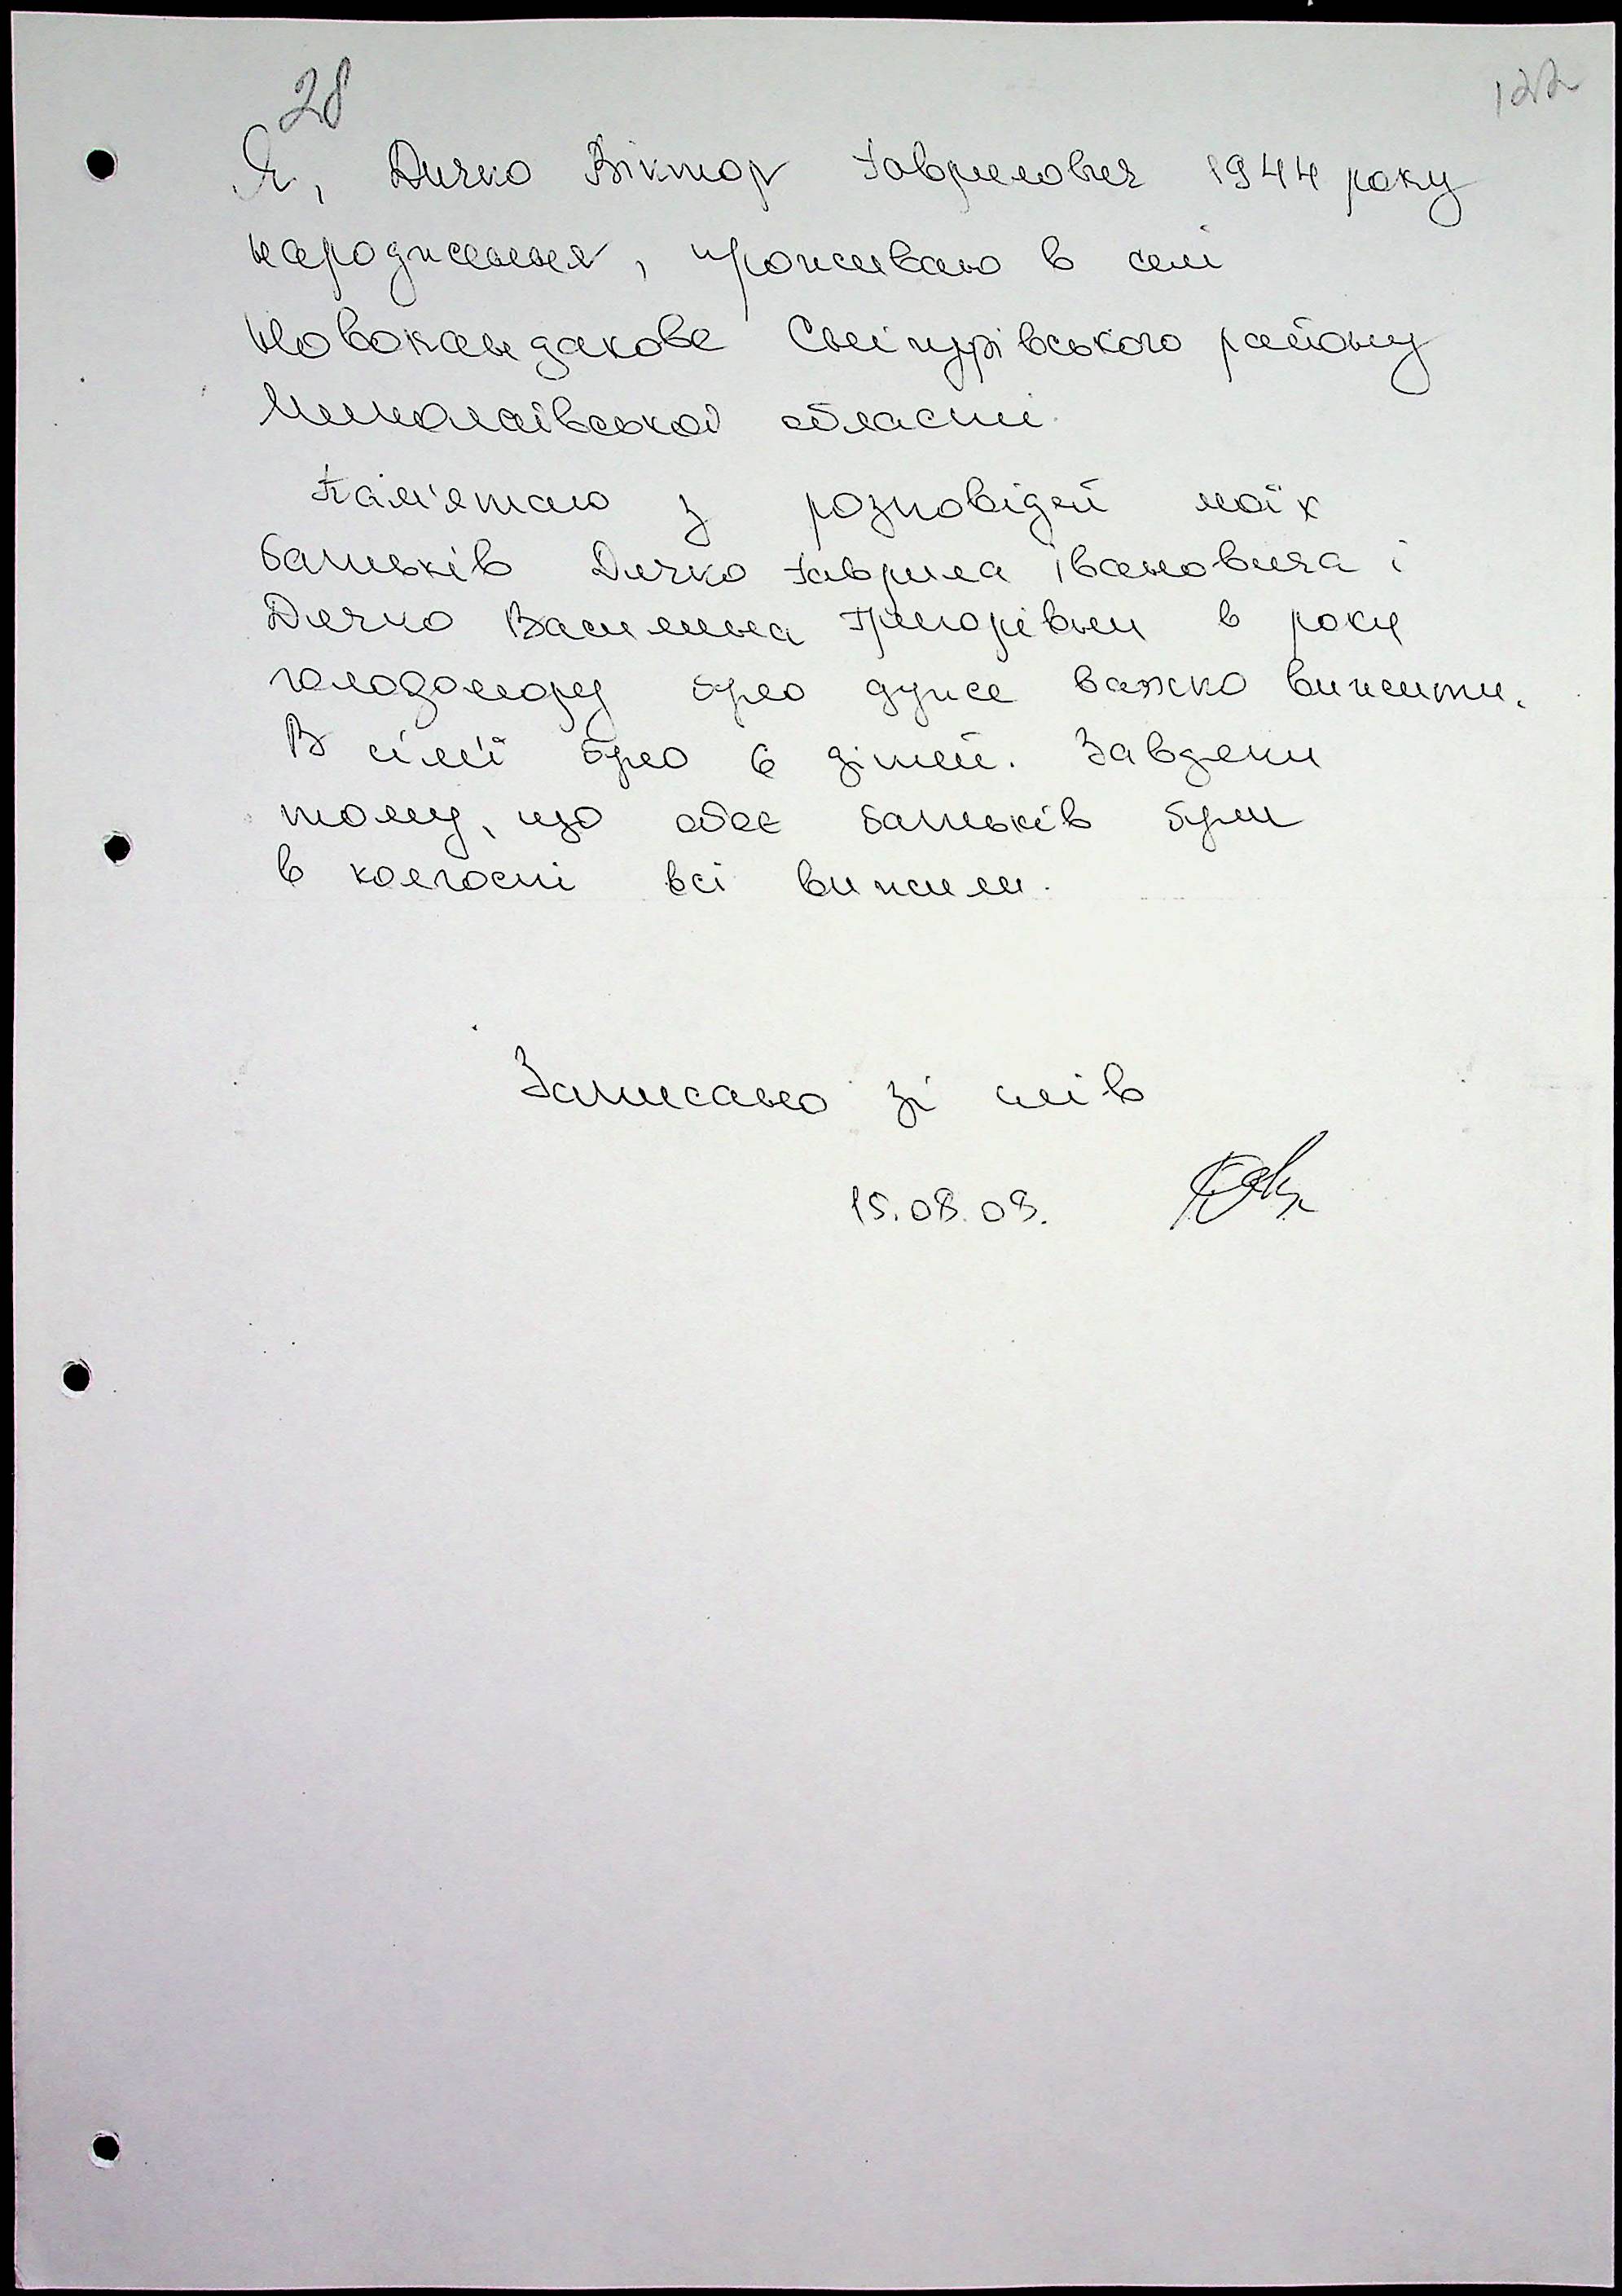 28
122
Я, Дичко Віктор Гаврилович 1944 року
народження, проживаю в селі
Новокандакове Снігурівського району
Миколаївської області.
Пам'ятаю з розповідей моїх
батьків Дичко Гаврила Івановича і
Дичко Василина Григорівни в роки
голодомору було дуже важко вижити.
В сім'ї було 6 дітей. Завдяки
тому, що обоє батьків були
в колгоспі всі вижили.
Записано зі слів
15.08.08.